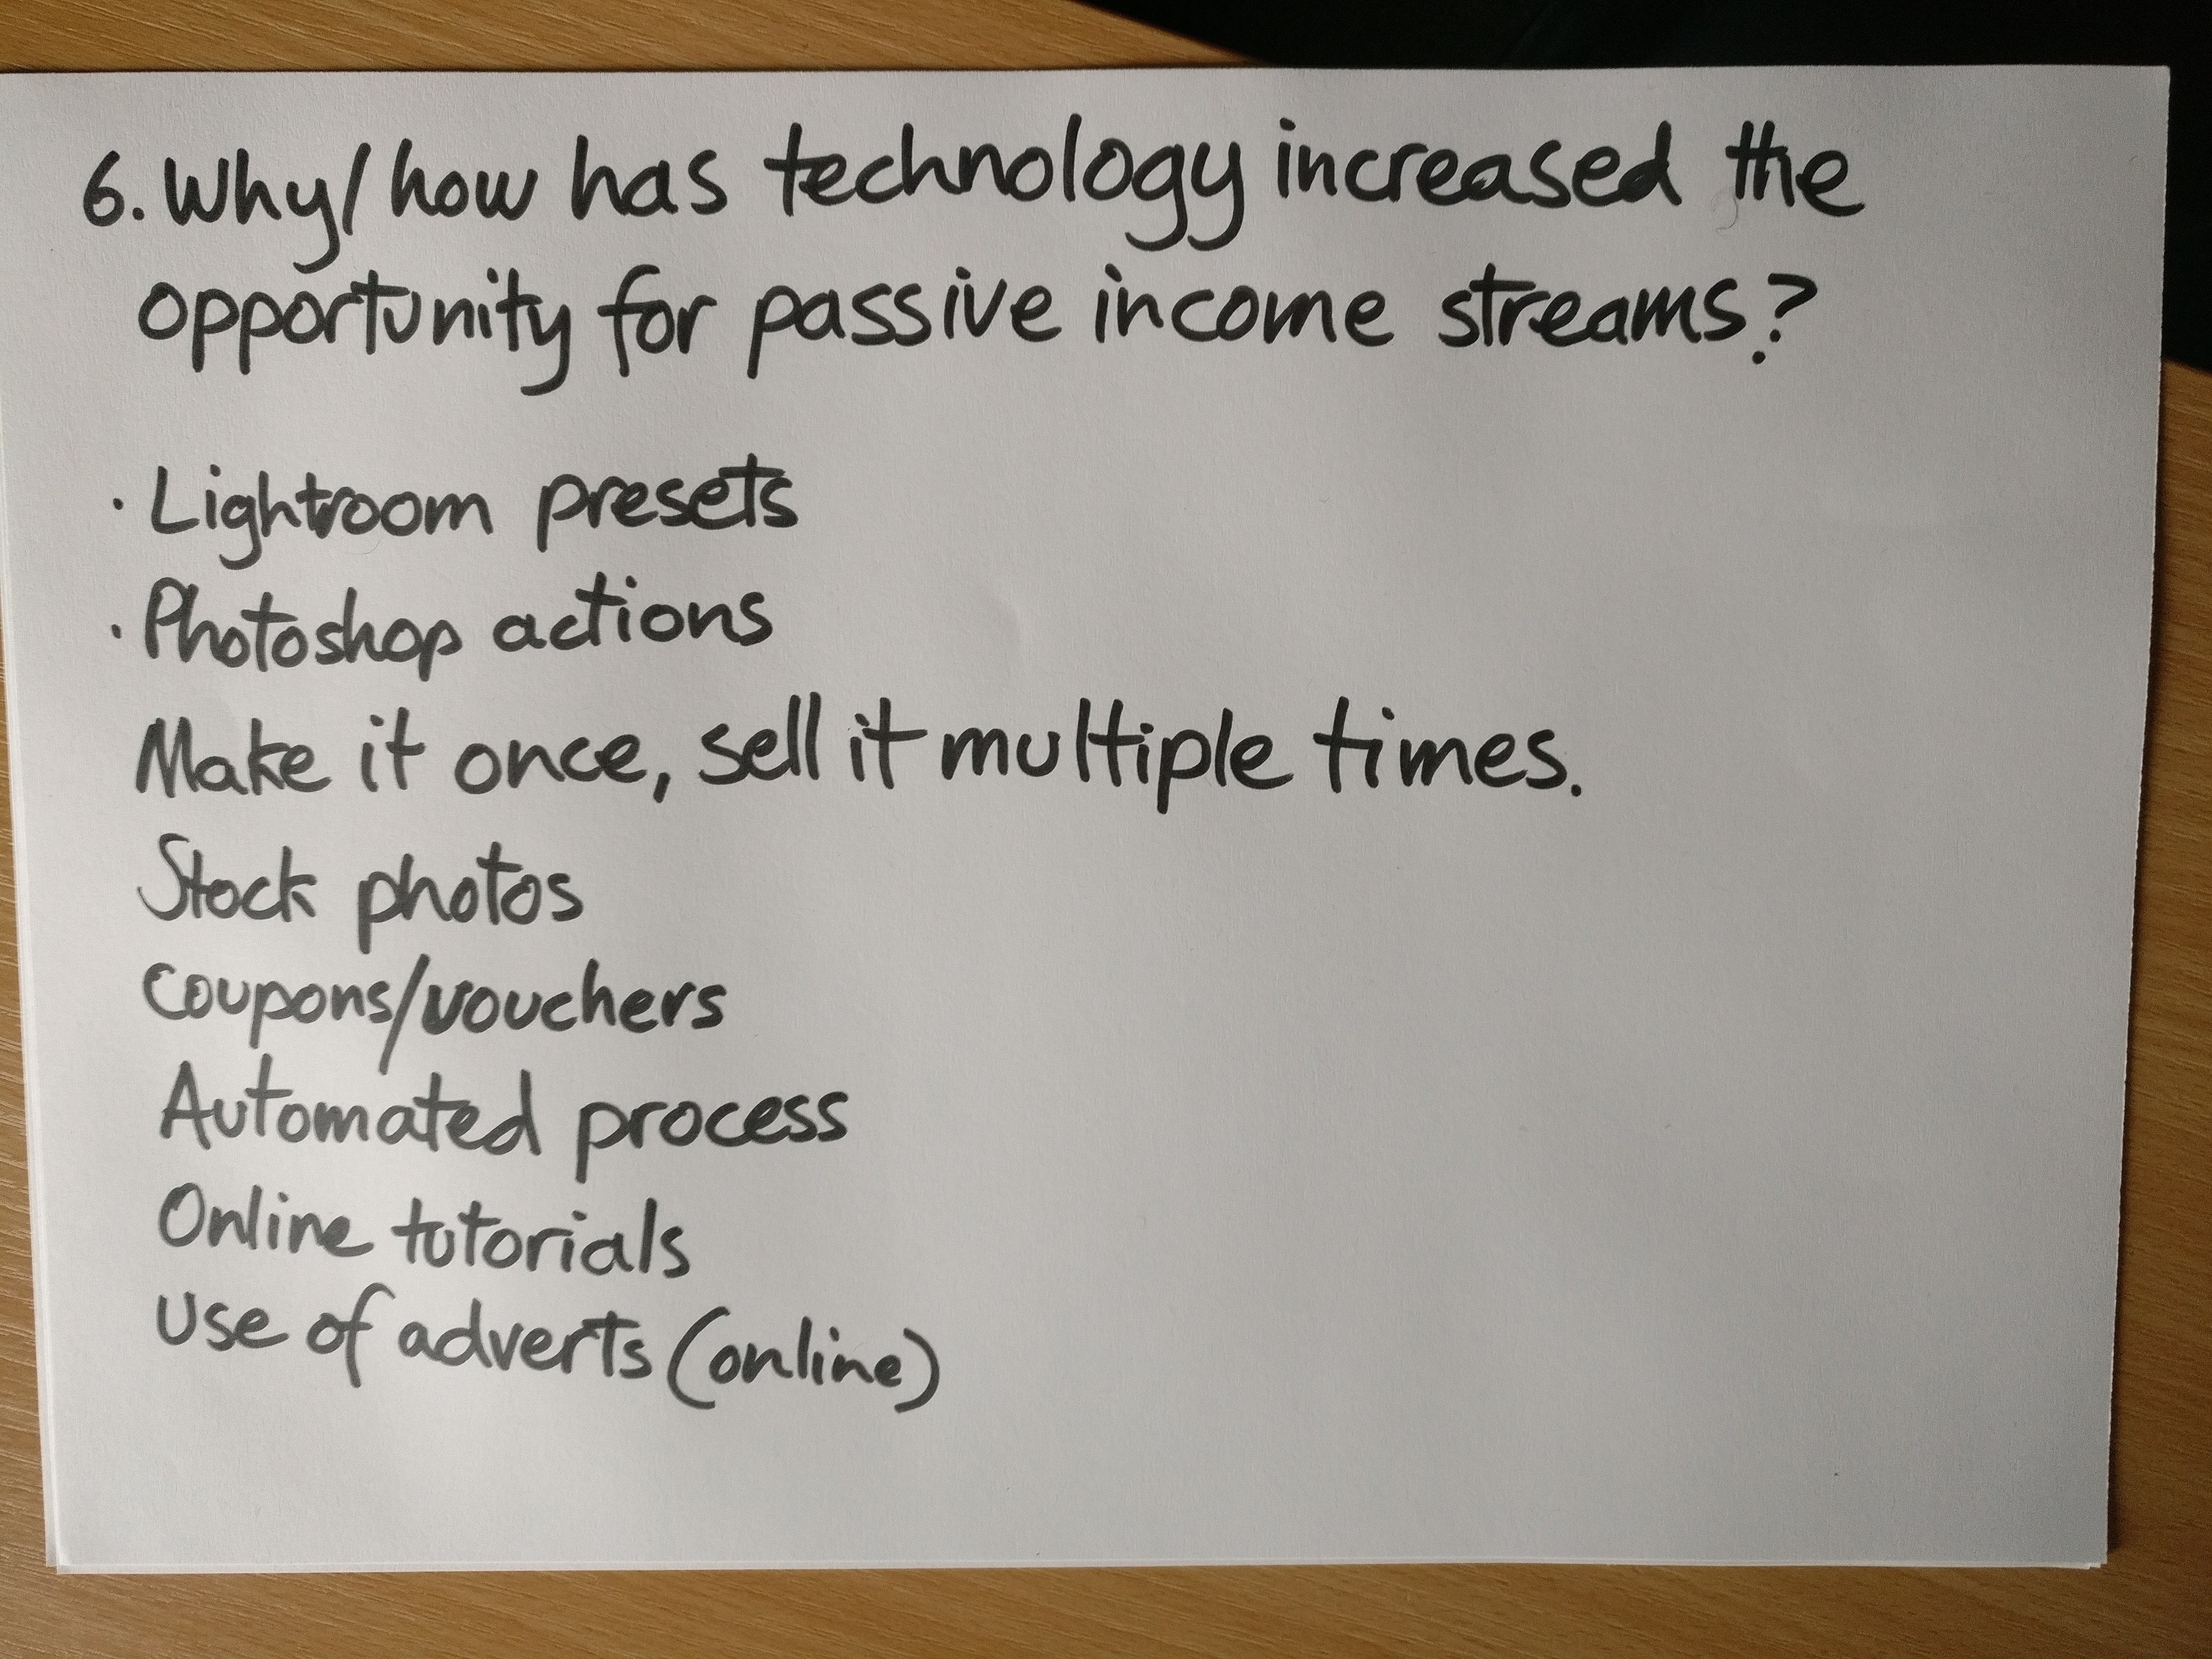 6. Why/how has technology increased the
opportunity for passive income streams?
· Lightroom presets
· Photoshop actions
Make it once, sell it multiple times.
Stock photos
Coupons/vouchers
Automated process
Online tutorials
Use of adverts (online)